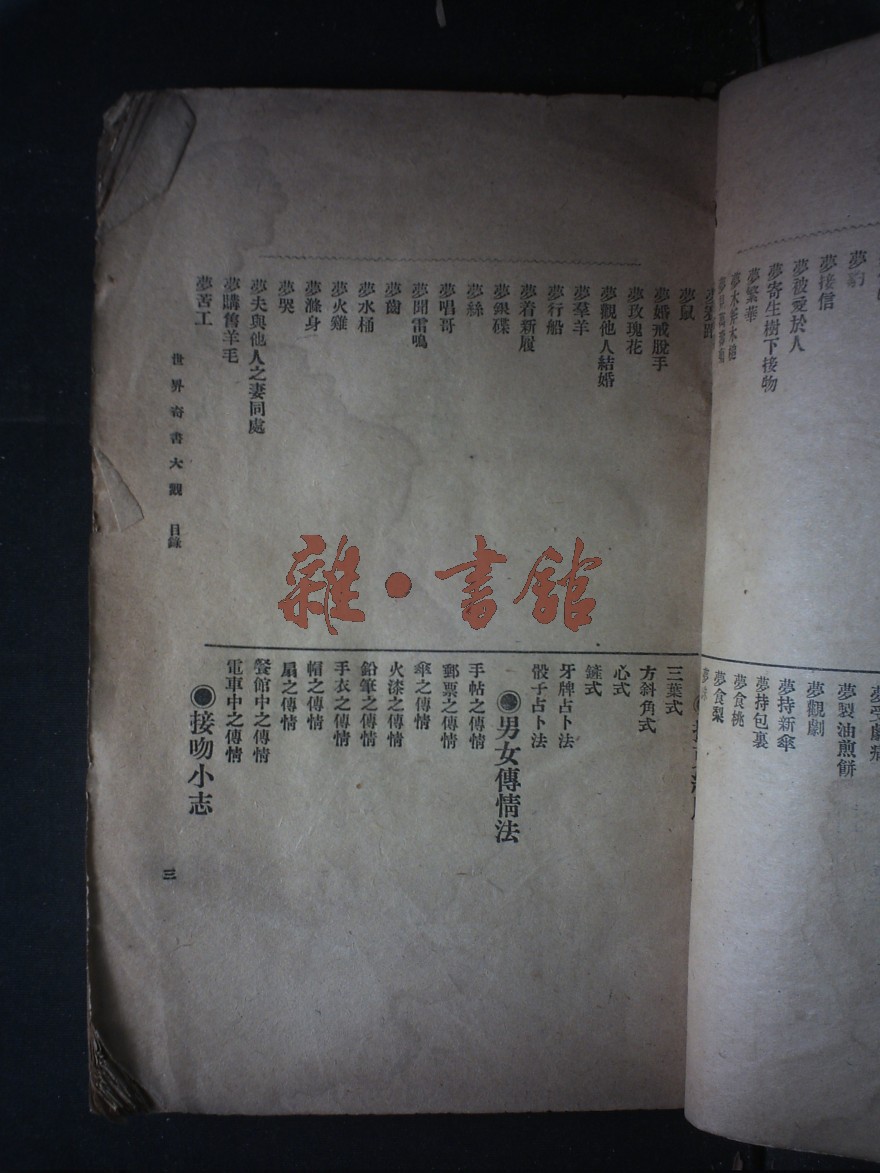 夢豹
夢接信
夢被愛於人
夢寄生樹下接吻
夢繁華
夢受劇痛
夢製油煎餅
夢觀劇
夢持新傘
夢持包裹
夢食桃
夢食梨
夢鼠
夢婚戒脫手
夢玫瑰花
夢觀他人結婚
夢羣羊
夢行船
夢着新履
夢銀碟
夢絲
夢唱哥
夢聞雷鳴
夢齒
夢水桶
夢火雞
夢滌身
夢哭
夢夫與他人之妻同處
夢購舊羊毛
夢苦工
三葉式
方斜角式
心式
鏟式
牙牌占卜法
骰子占卜法
◉男女傳情法
手帖之傳情
郵票之傳情
傘之傳情
火漆之傳情
鉛筆之傳情
手衣之傳情
帽之傳情
扇之傳情
餐館中之傳情
電車中之傳情
◉接吻小志
世界奇書大觀 目錄
三
雜·書館